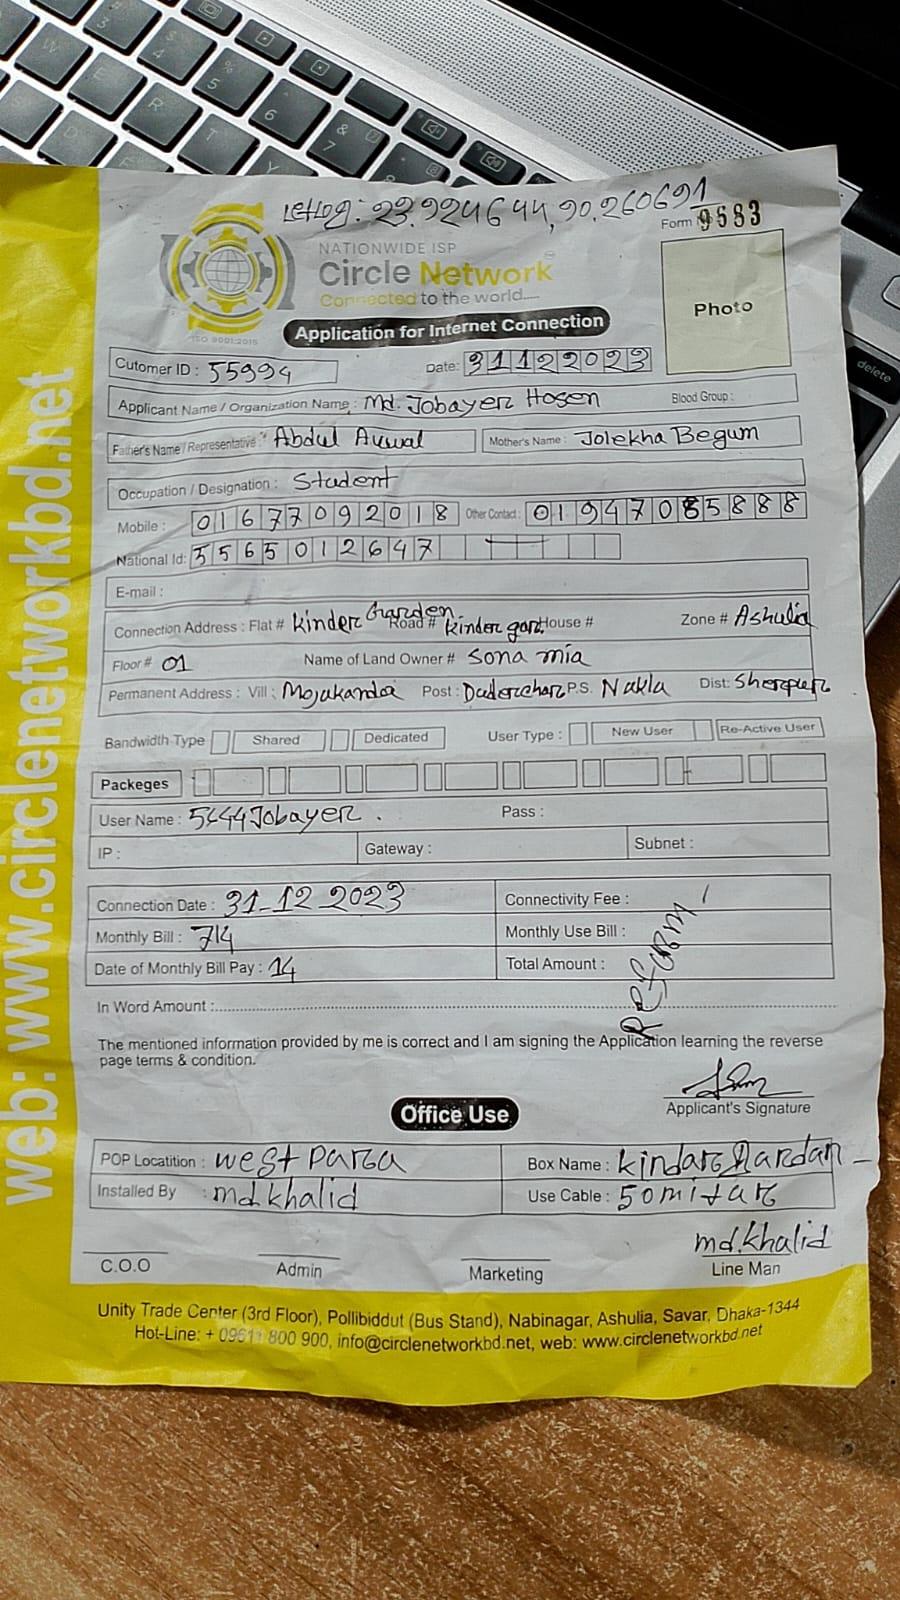 Letlog: 23.924644, 90.260691
Form 9683
NATIONWIDE ISP
Circle Network
Connected to the world....
ISO 9001:2015
Application for Internet Connection
Photo
Cutomer ID : 55994 Date: 31122023
Applicant Name / Organization Name : Md. Jobayer Hosen Blood Group :
Father's Name / Representative : Abdul Auwal Mother's Name : Jolekha Begum
Occupation / Designation : Student
Mobile : 01677092018 Other Contact : 01947085888
National Id: 5565012647
E-mail :
Connection Address : Flat # Kinder Garden Road # Kinder gar. House # Zone # Ashulia
Floor # 01 Name of Land Owner # Sona mia
Permanent Address : Vill : Mojakanda Post : Daderchar P.S. Nakla Dist: Sherpur
Bandwidth Type Shared Dedicated User Type : New User Re-Active User
Packeges
User Name : Jobayer . Pass :
IP : Gateway : Subnet :
Connection Date : 31-12 2023 Connectivity Fee :
Monthly Bill : 714 Monthly Use Bill :
Date of Monthly Bill Pay : 14 Total Amount :
In Word Amount :
The mentioned information provided by me is correct and I am signing the Application learning the reverse
page terms & condition.
Applicant's Signature
Office Use
POP Locatition : west para Box Name : kindar Gardan
Installed By : md.khalid Use Cable : 50 mitar
md.khalid
C.O.O Admin Marketing Line Man
Unity Trade Center (3rd Floor), Pollibiddut (Bus Stand), Nabinagar, Ashulia, Savar, Dhaka-1344
Hot-Line: + 09611 800 900, info@circlenetworkbd.net, web: www.circlenetworkbd.net
web: www.circlenetworkbd.net
delete